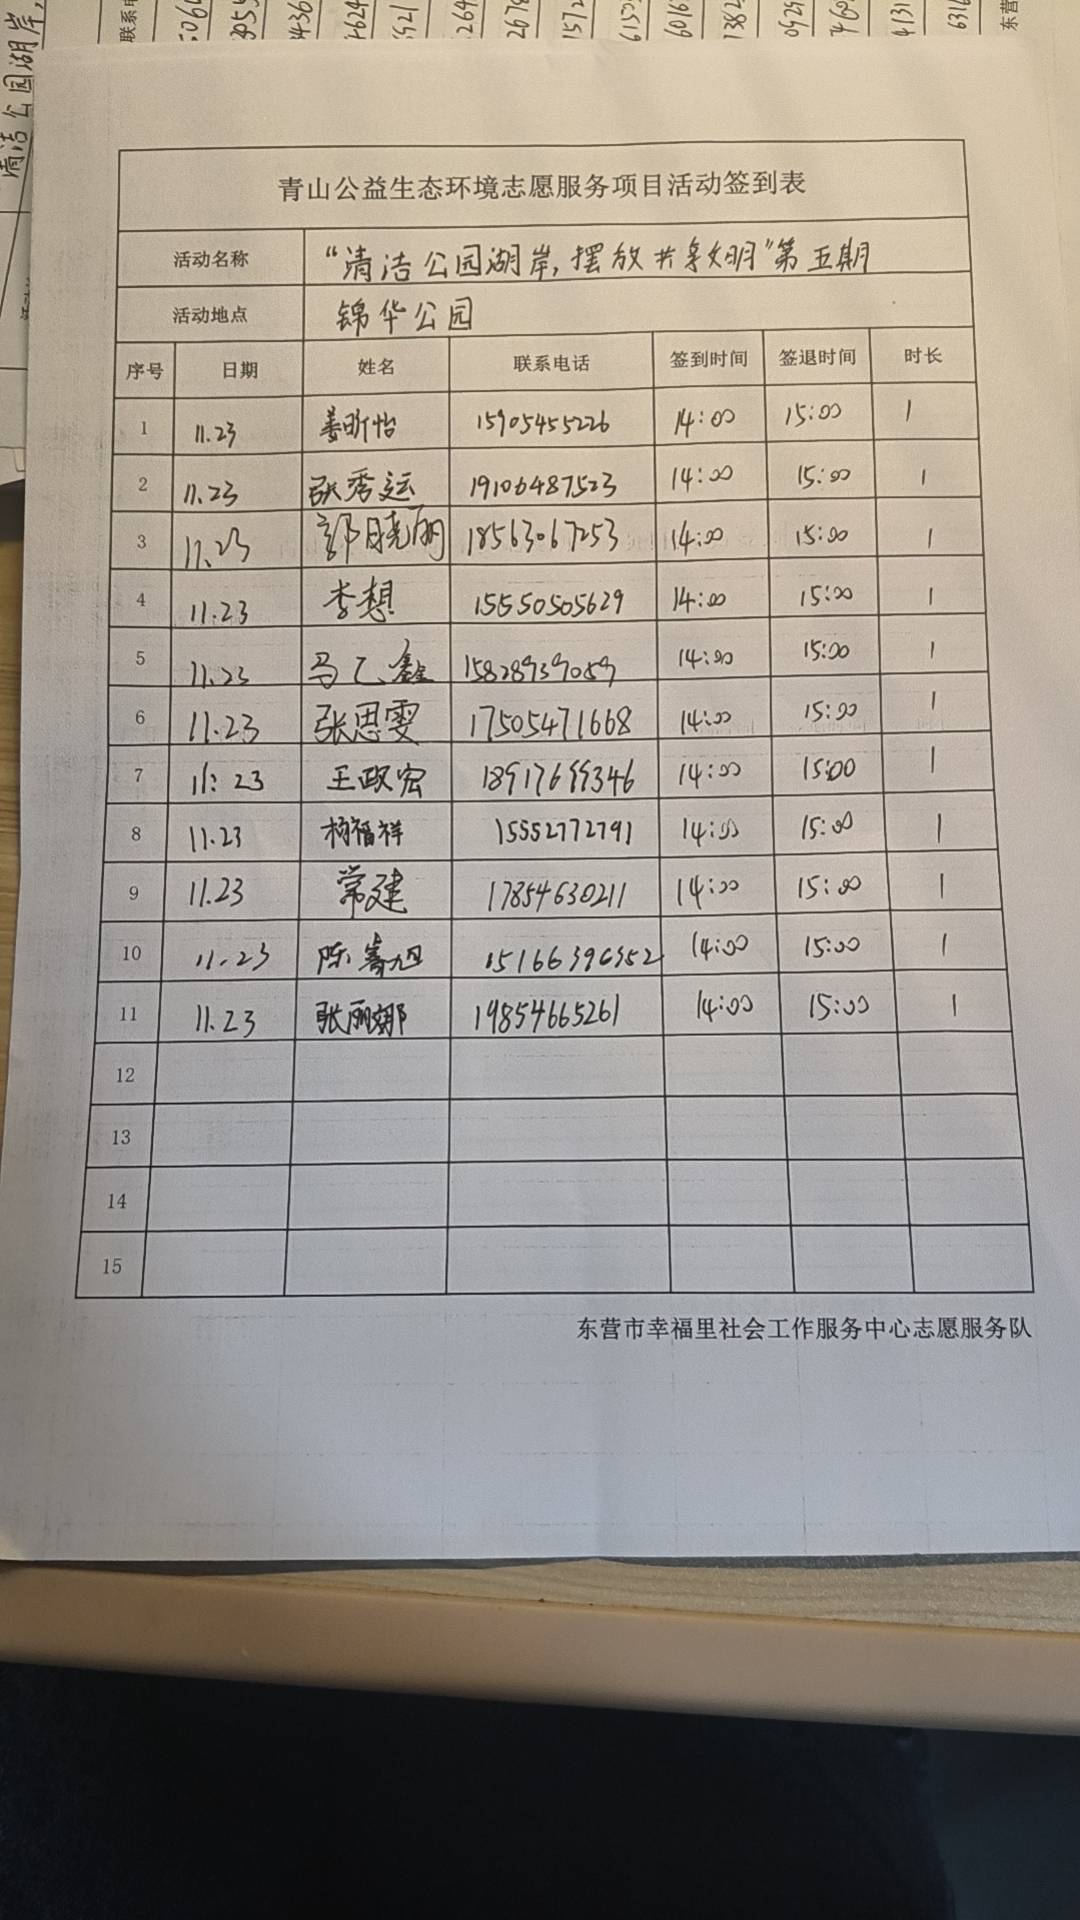 青山公益生态环境志愿服务项目活动签到表
活动名称 "清洁公园湖岸,摆放共享文明"第五期
活动地点 锦华公园
序号 日期 姓名 联系电话 签到时间 签退时间 时长
1 11.23 姜昕怡 15905455226 14:00 15:00 1
2 11.23 张秀运 19106487523 14:00 15:00 1
3 11.23 郭晓丽 18563067253 14:00 15:00 1
4 11.23 李想 15550505629 14:00 15:00 1
5 11.23 马乙鑫 15828939059 14:00 15:00 1
6 11.23 张思雯 17505471668 14:00 15:00 1
7 11:23 王政宏 18917699346 14:00 15:00 1
8 11.23 杨福祥 15552772791 14:00 15:00 1
9 11.23 常建 17854630211 14:00 15:00 1
10 11.23 陈 旭 15166396352 14:00 15:00 1
11 11.23 张丽娜 19854665261 14:00 15:00 1
12
13
14
15
东营市幸福里社会工作服务中心志愿服务队